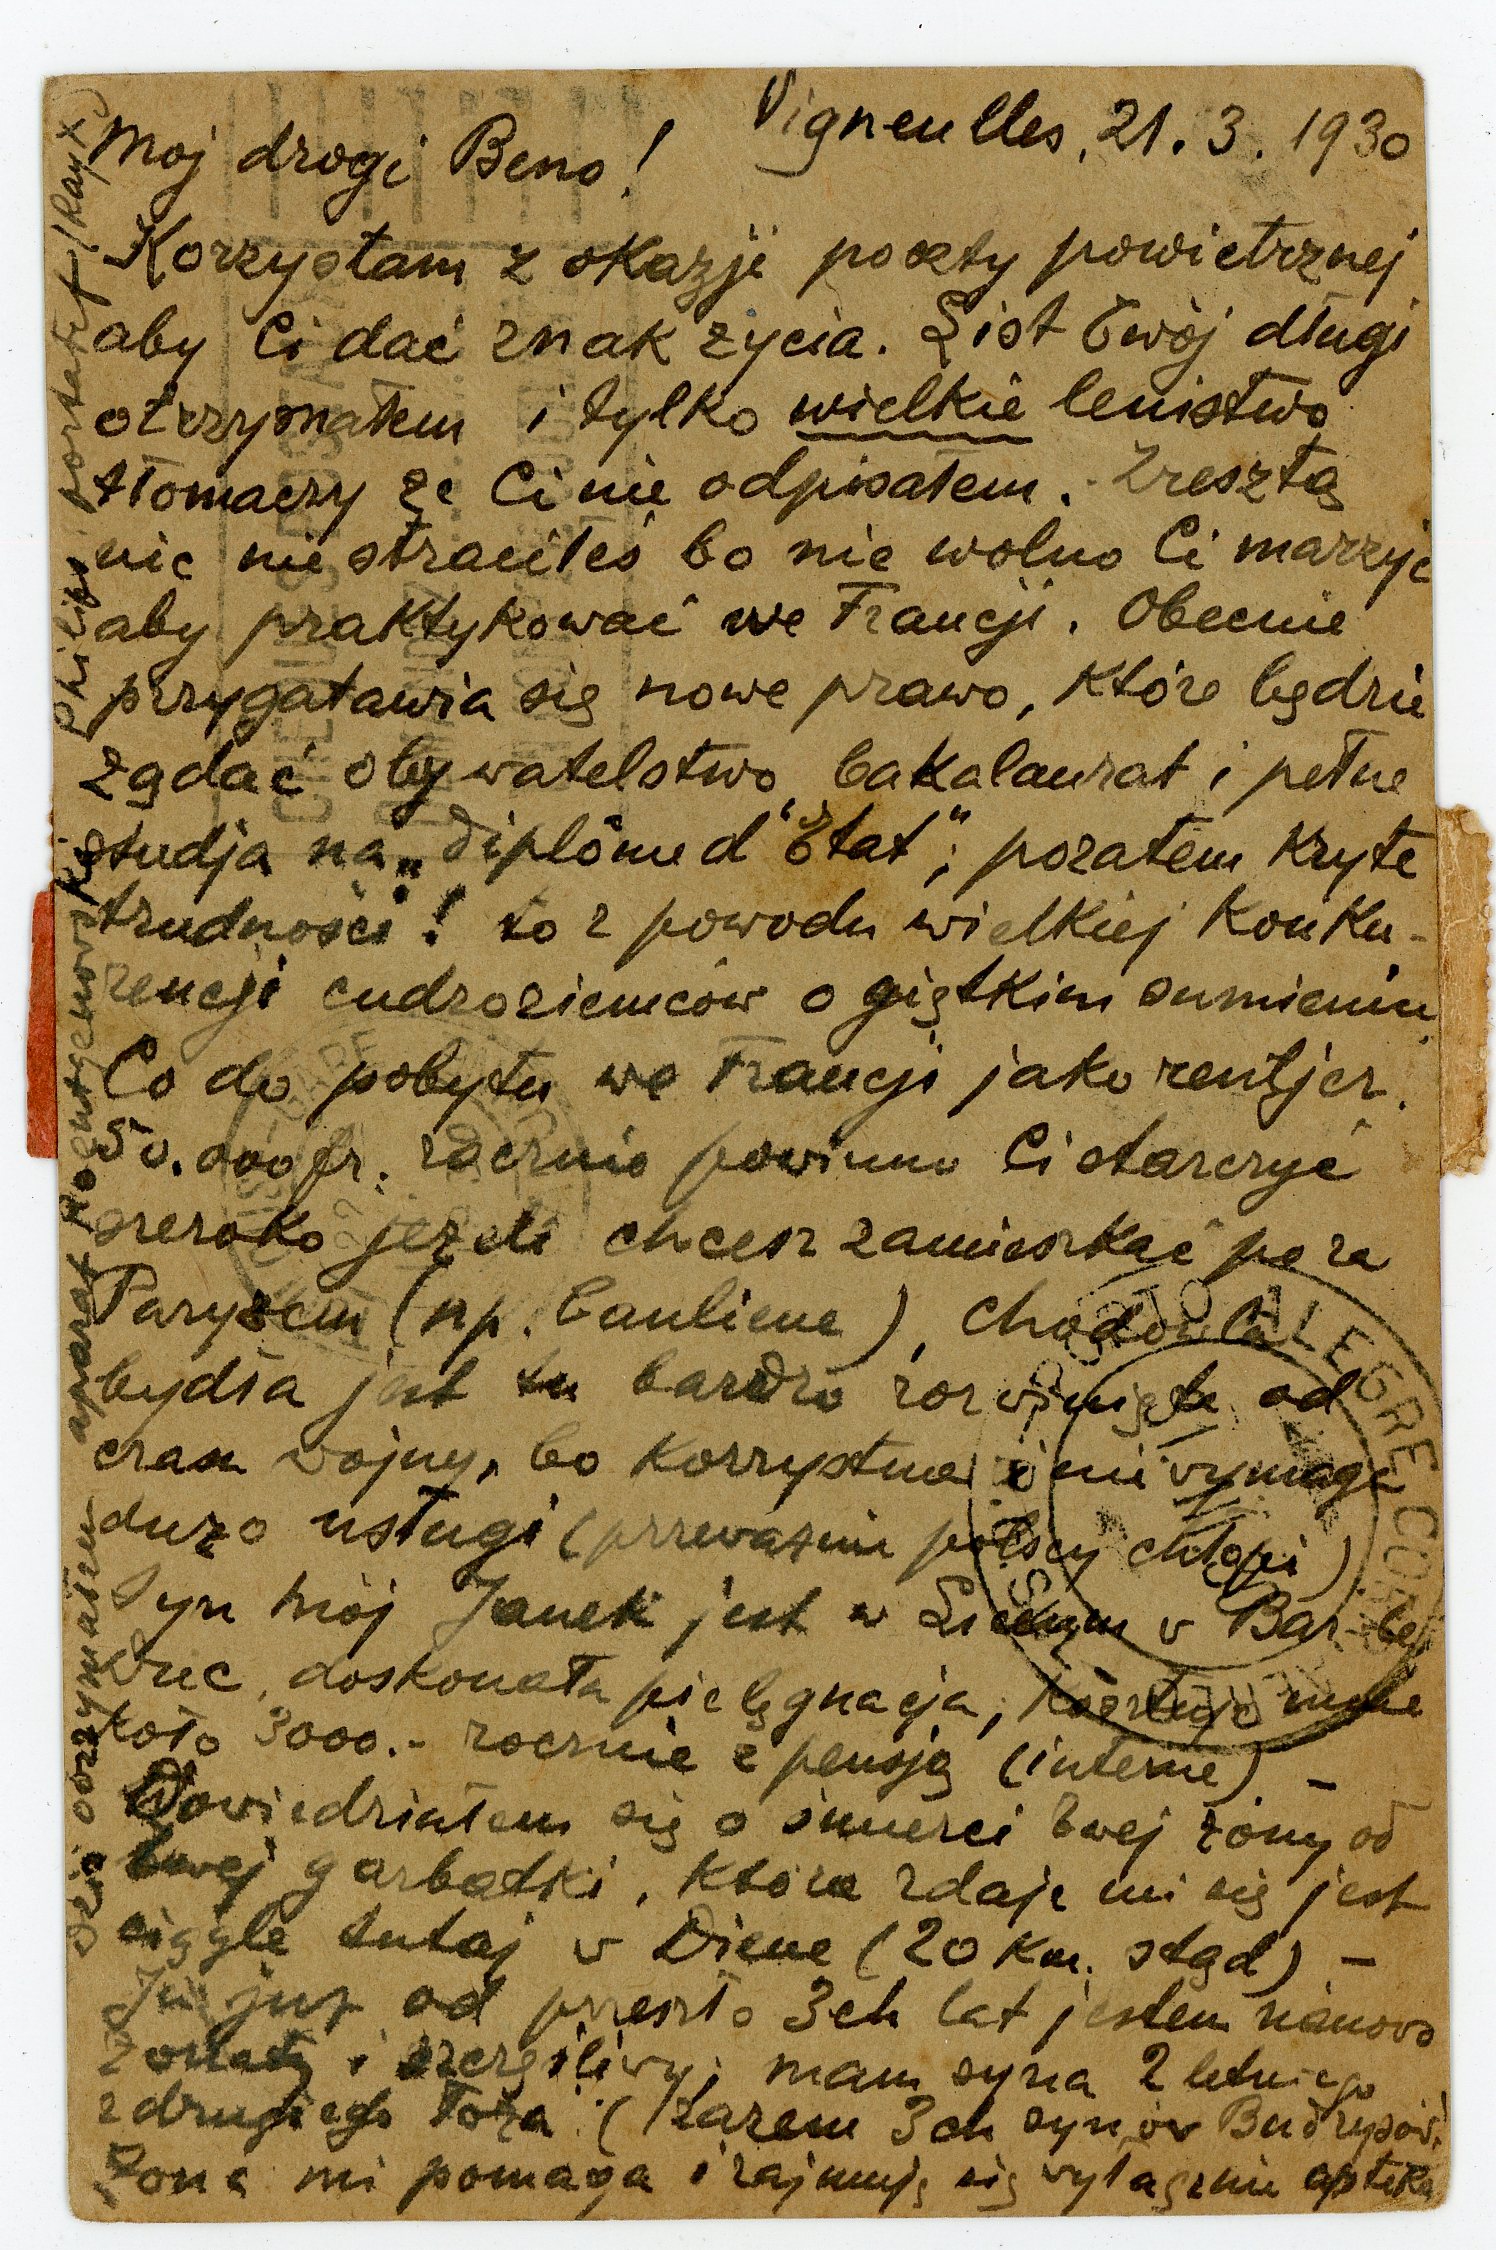 Vigneulles, 21.3.1930
Moj drogi Beno!
Korzystam z okazji poczty powietrznej
aby Ci dać znak życia. List Twój długi
otrzymałem i tylko wielkie lenistwo
tłomaczy że Ci nie odpisałem. Zresztą
nic nie straciłeś bo nie wolno Ci marzyć
aby praktykować we Francji. Obecnie
przygatawia się nowe prawo, które będzie
żądać obywatelstwo, bakalaurat i pełne
studja na „Diplôme d'Etat", pozatem kryte
trudności! to z powodu wielkiej konku-
rencji cudzoziemców o giętkim sumieniu.
Co do pobytu we Francji jako rentjer.
50.000 fr. rocznie powinno Ci starczyć
szeroko jeżeli chcesz zamieszkać poza
Paryżem (np. banlieue), chodowla
bydła jest tu bardzo rozwinięta od
czasu wojny, bo korzystna i nie wymaga
dużo usługi (przeważnie polscy chłopi)
Syn mój Janek jest w Liceum w Bar le
Duc, doskonała pielęgnacja, kosztuje mnie
koło 3000.- rocznie z pensją (interne) -
Dowiedziałem się o śmierci twej żony od
twej garbatki, która zdaje mi się jest
ciągle tutaj w Dieue (20 km. stąd) -
Ja już od przeszło 3ch lat jestem nanowo
żonaty i szczęśliwy, mam syna 2 letniego
z drugiego łoża (razem 3ch synów Budrysów.
Żona mi pomaga i zajmuję się wyłącznie apteką
Dziś otrzymałem aparat Roentgenowski Philips portatif (Rayx)
PORTO ALEGRE